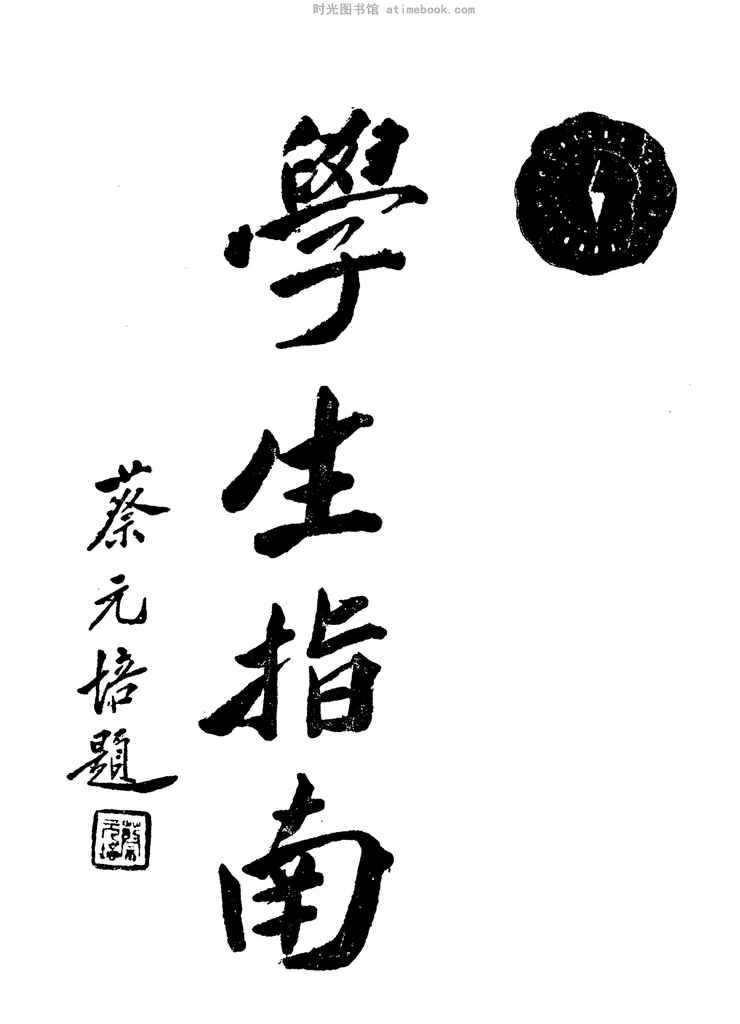 时光图书馆 atimebook.com
學生指南
蔡元培題
蔡元培